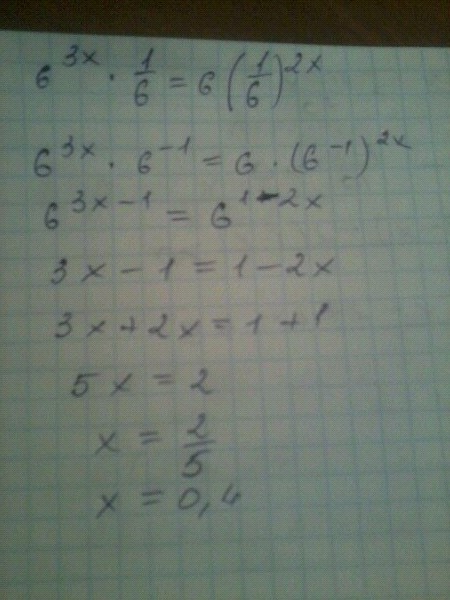 6^{3x} · \frac{1}{6} = 6 (\frac{1}{6})^{2x}
6^{3x} · 6^{-1} = 6 · (6^{-1})^{2x}
6^{3x-1} = 6^{1-2x}
3x - 1 = 1 - 2x
3x + 2x = 1 + 1
5x = 2
x = \frac{2}{5}
x = 0,4